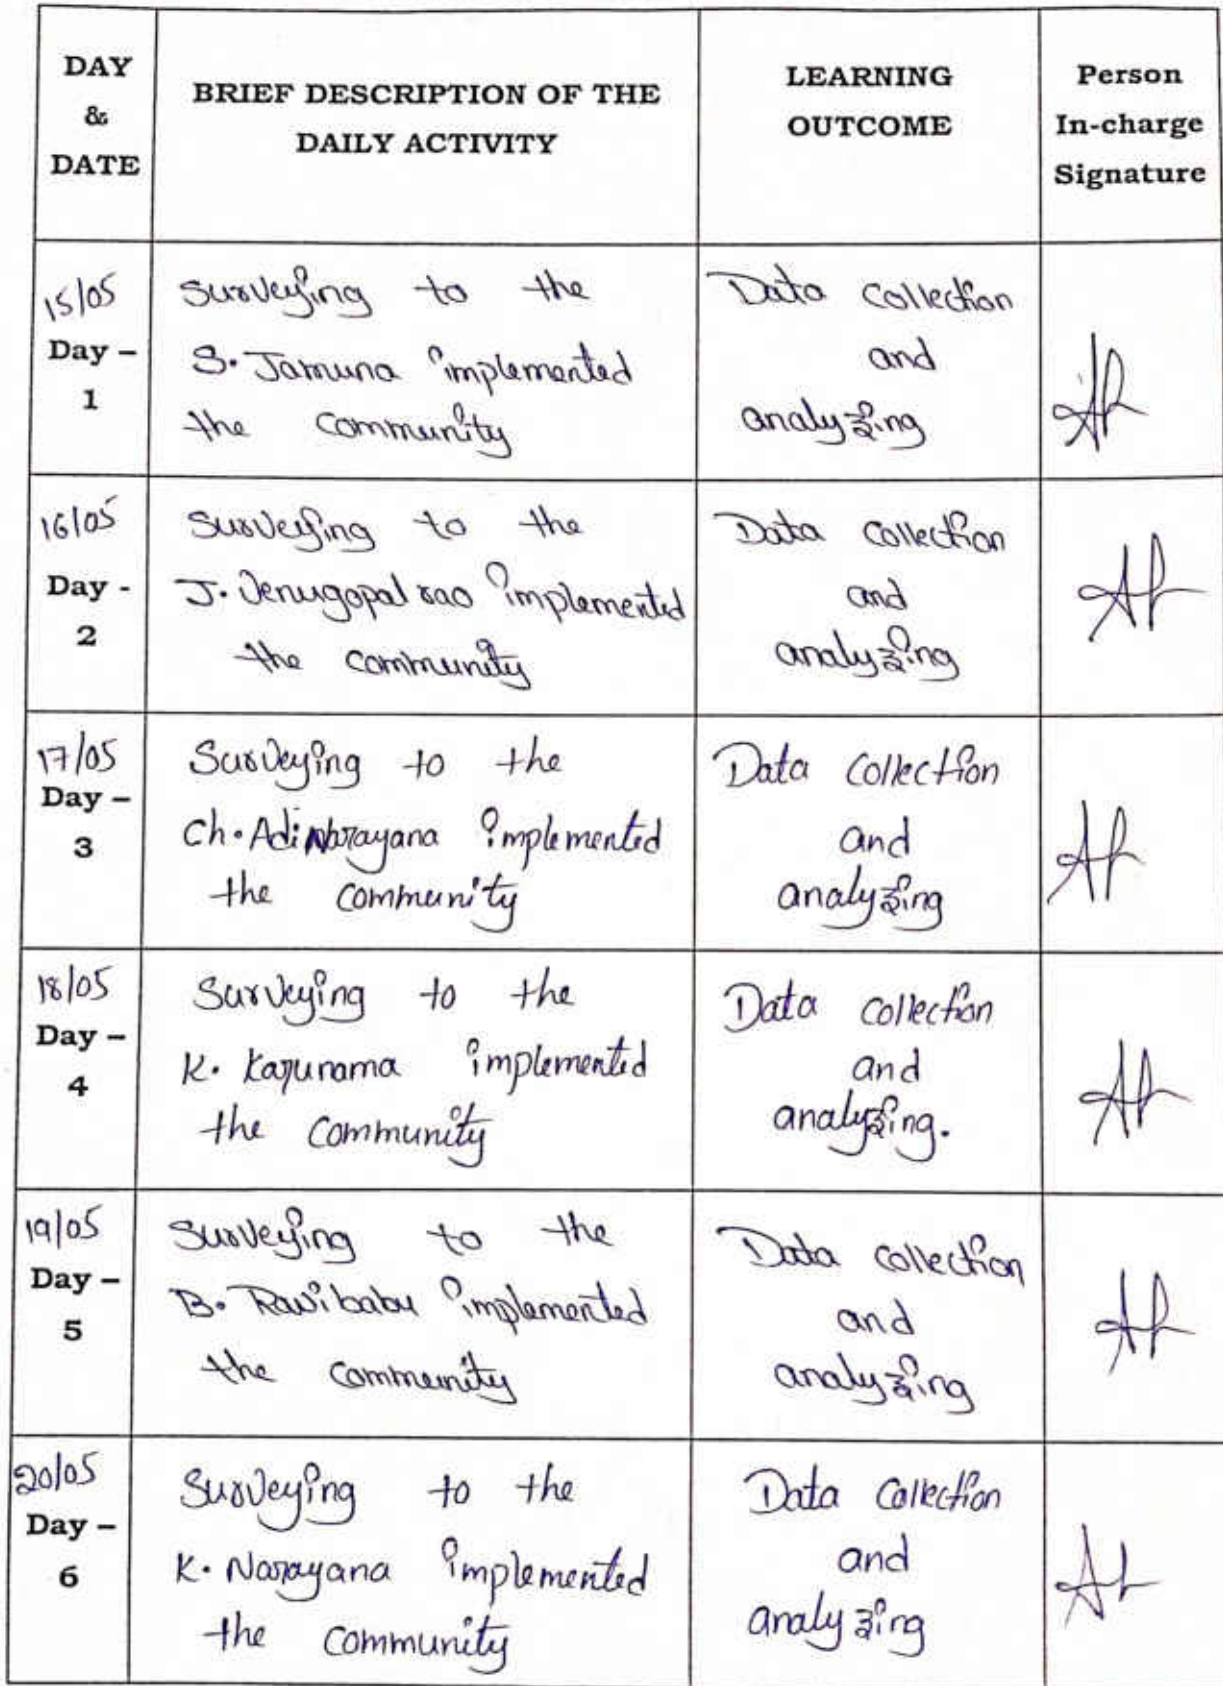 DAY & DATE
BRIEF DESCRIPTION OF THE DAILY ACTIVITY
LEARNING OUTCOME
Person In-charge Signature
15/05
Day – 1
Surveying to the
S. Jamuna implemented
the community
Data collection
and
analyzing
16/05
Day - 2
Surveying to the
J. Venugopal rao implemented
the community
Data collection
and
analyzing
17/05
Day – 3
Surveying to the
Ch. Adinarayana implemented
the community
Data collection
and
analyzing
18/05
Day – 4
Surveying to the
K. Karunama implemented
the community
Data collection
and
analyzing.
19/05
Day – 5
Surveying to the
B. Ravibabu implemented
the community
Data collection
and
analyzing
20/05
Day – 6
Surveying to the
K. Narayana implemented
the community
Data collection
and
analyzing